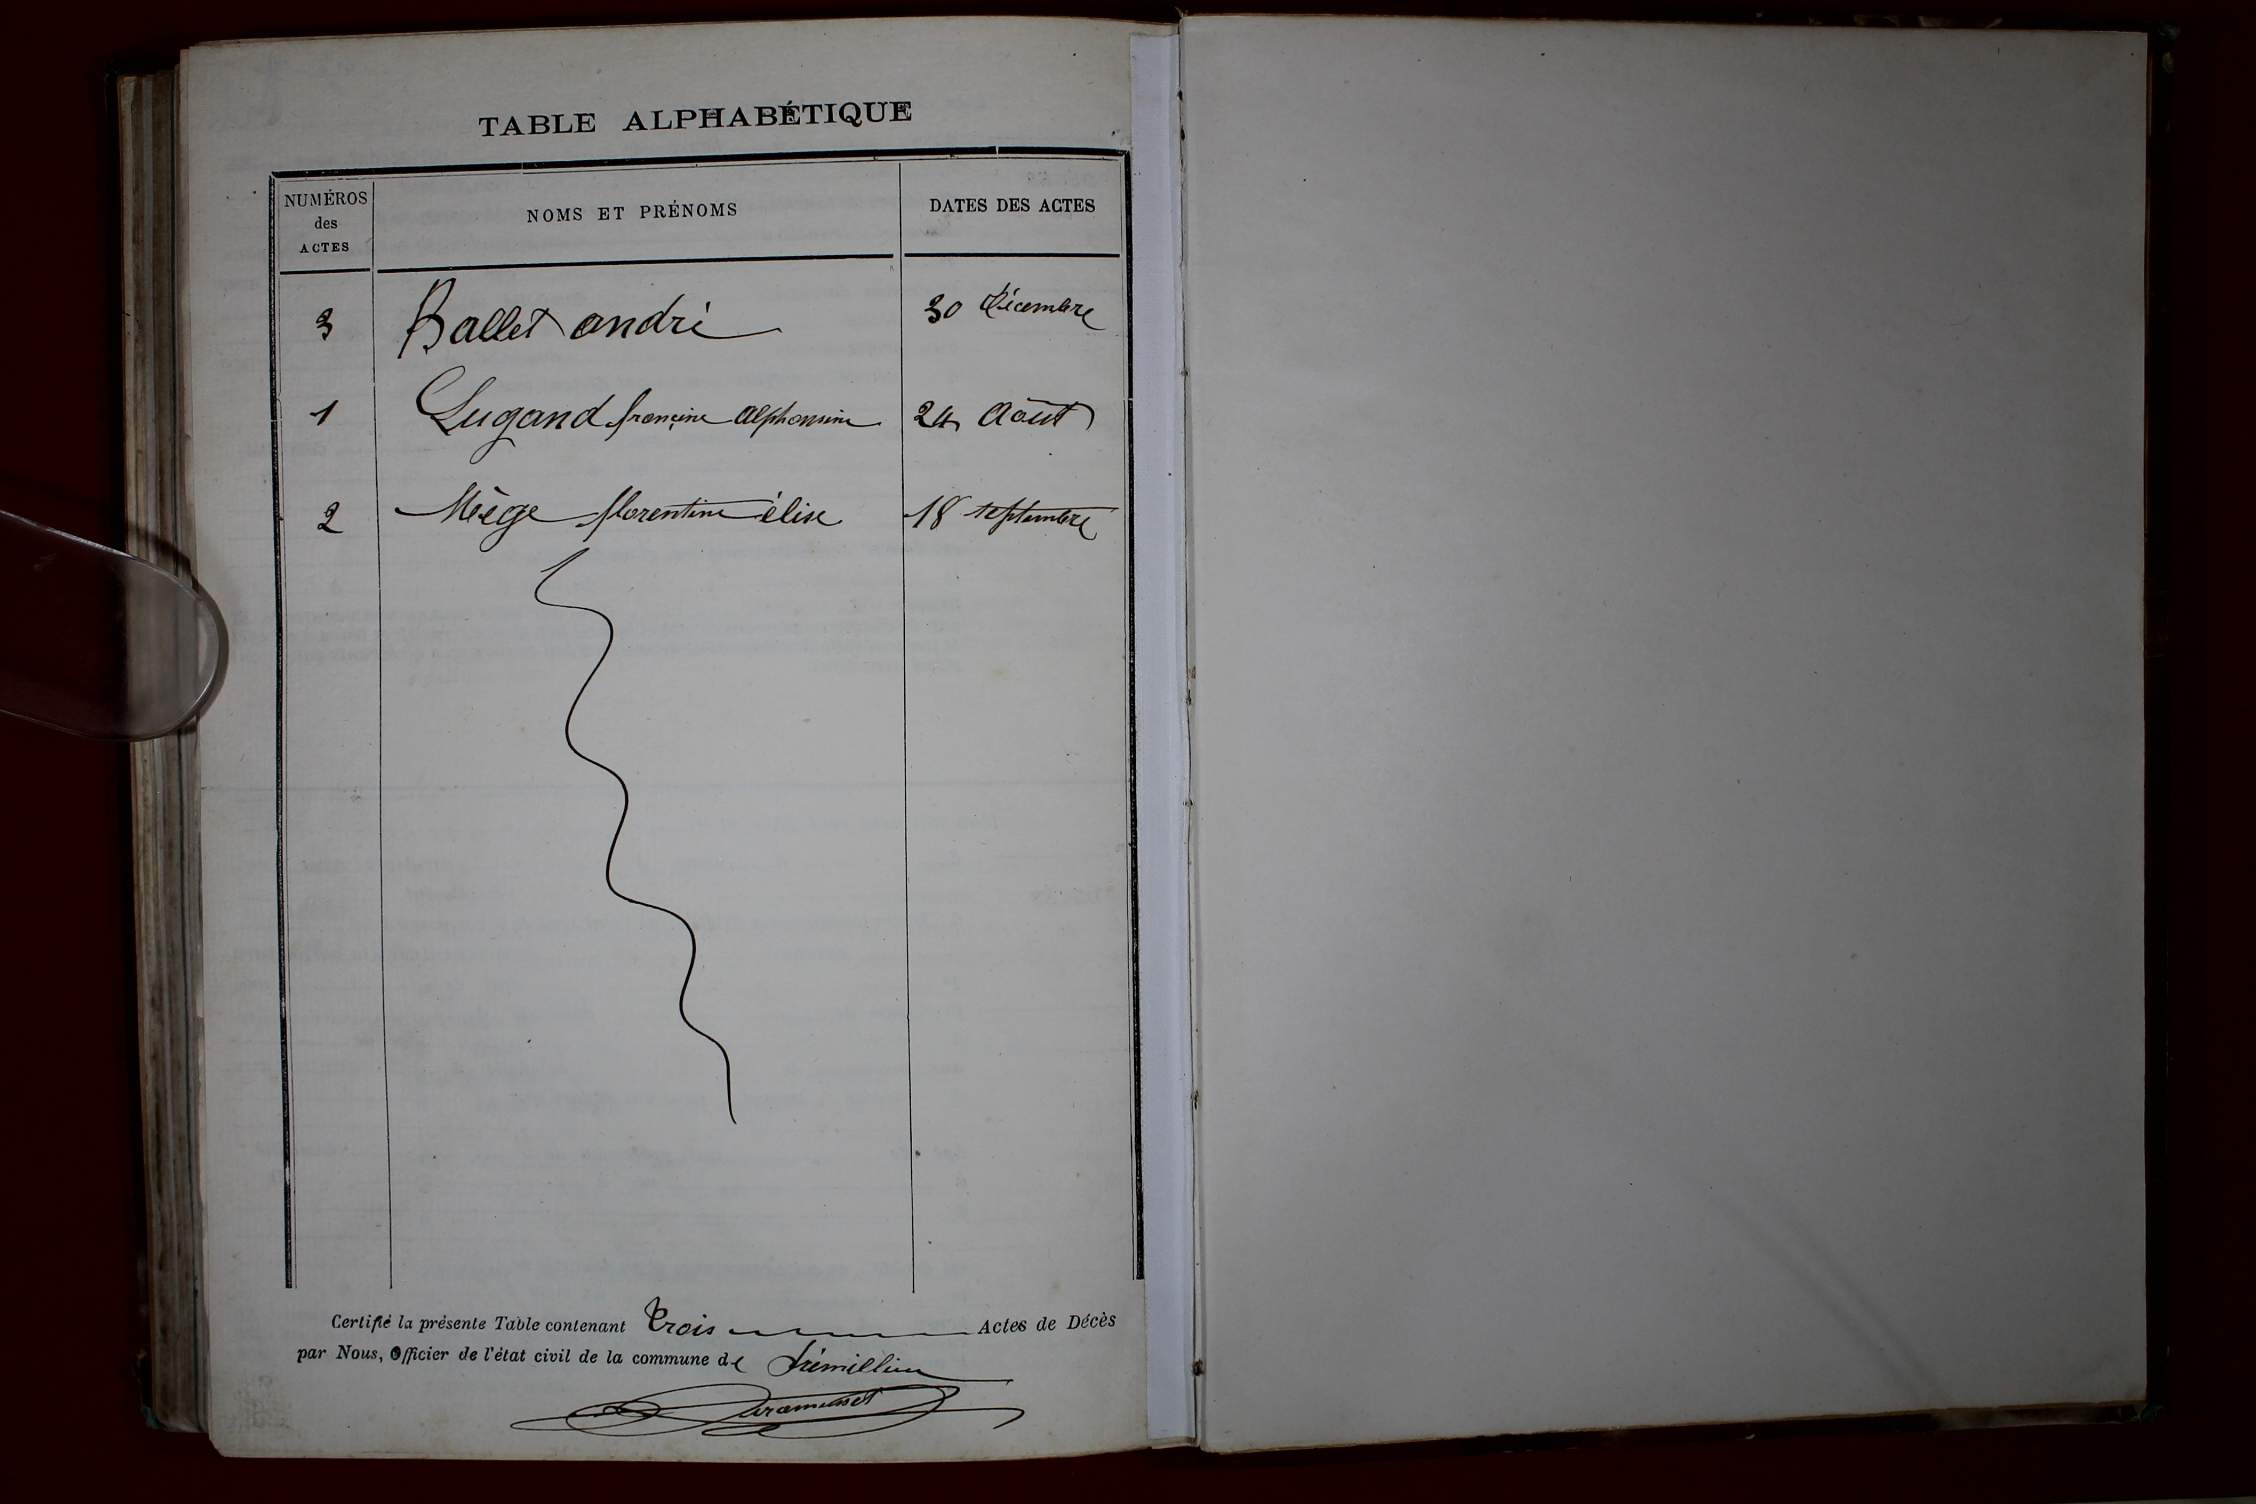 TABLE ALPHABÉTIQUE
NUMÉROS des ACTES NOMS ET PRÉNOMS DATES DES ACTES
3 Ballet andré 30 Décembre
1 Lugand françine alphonsine 24 Août
2 Miège florentine élise 18 septembre
Certifié la présente Table contenant trois Actes de Décès
par Nous, Officier de l'état civil de la commune de